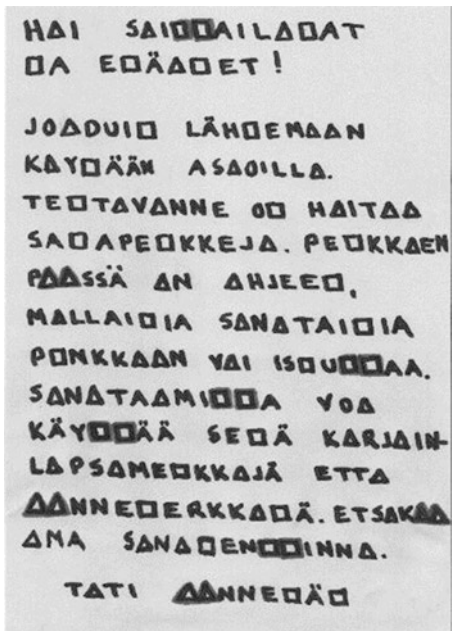 HΔI SAI□□AILΔ□AT
□A E□ÄΔ□ET!
JOΔDUI□ LÄH□EMΔΔN
KΔY□ÄÄN ASΔOILLA.
TE□TAVANNE O□ HΔITΔΔ
SΔ□APE□KKEJA. PE□KKΔEN
PΔΔSSÄ ΔN ΔHJEE□,
MALLΔI□IA SΔNΔTΔI□IA
P□NKKΔΔN VΔI ISOU□□ΔA.
SΔNΔTΔAMI□□A VOΔ
KÄY□□ÄÄ SE□Ä KΔRJΔIN-
LΔPSΔME□KKΔJÄ ETTΔ
ΔΔNNE□ERKKΔ□Ä. ETSΔKΔΔ
ΔMA SΔNΔ□EN□□INNΔ.
TΔTI ΔΔNNE□Ä□